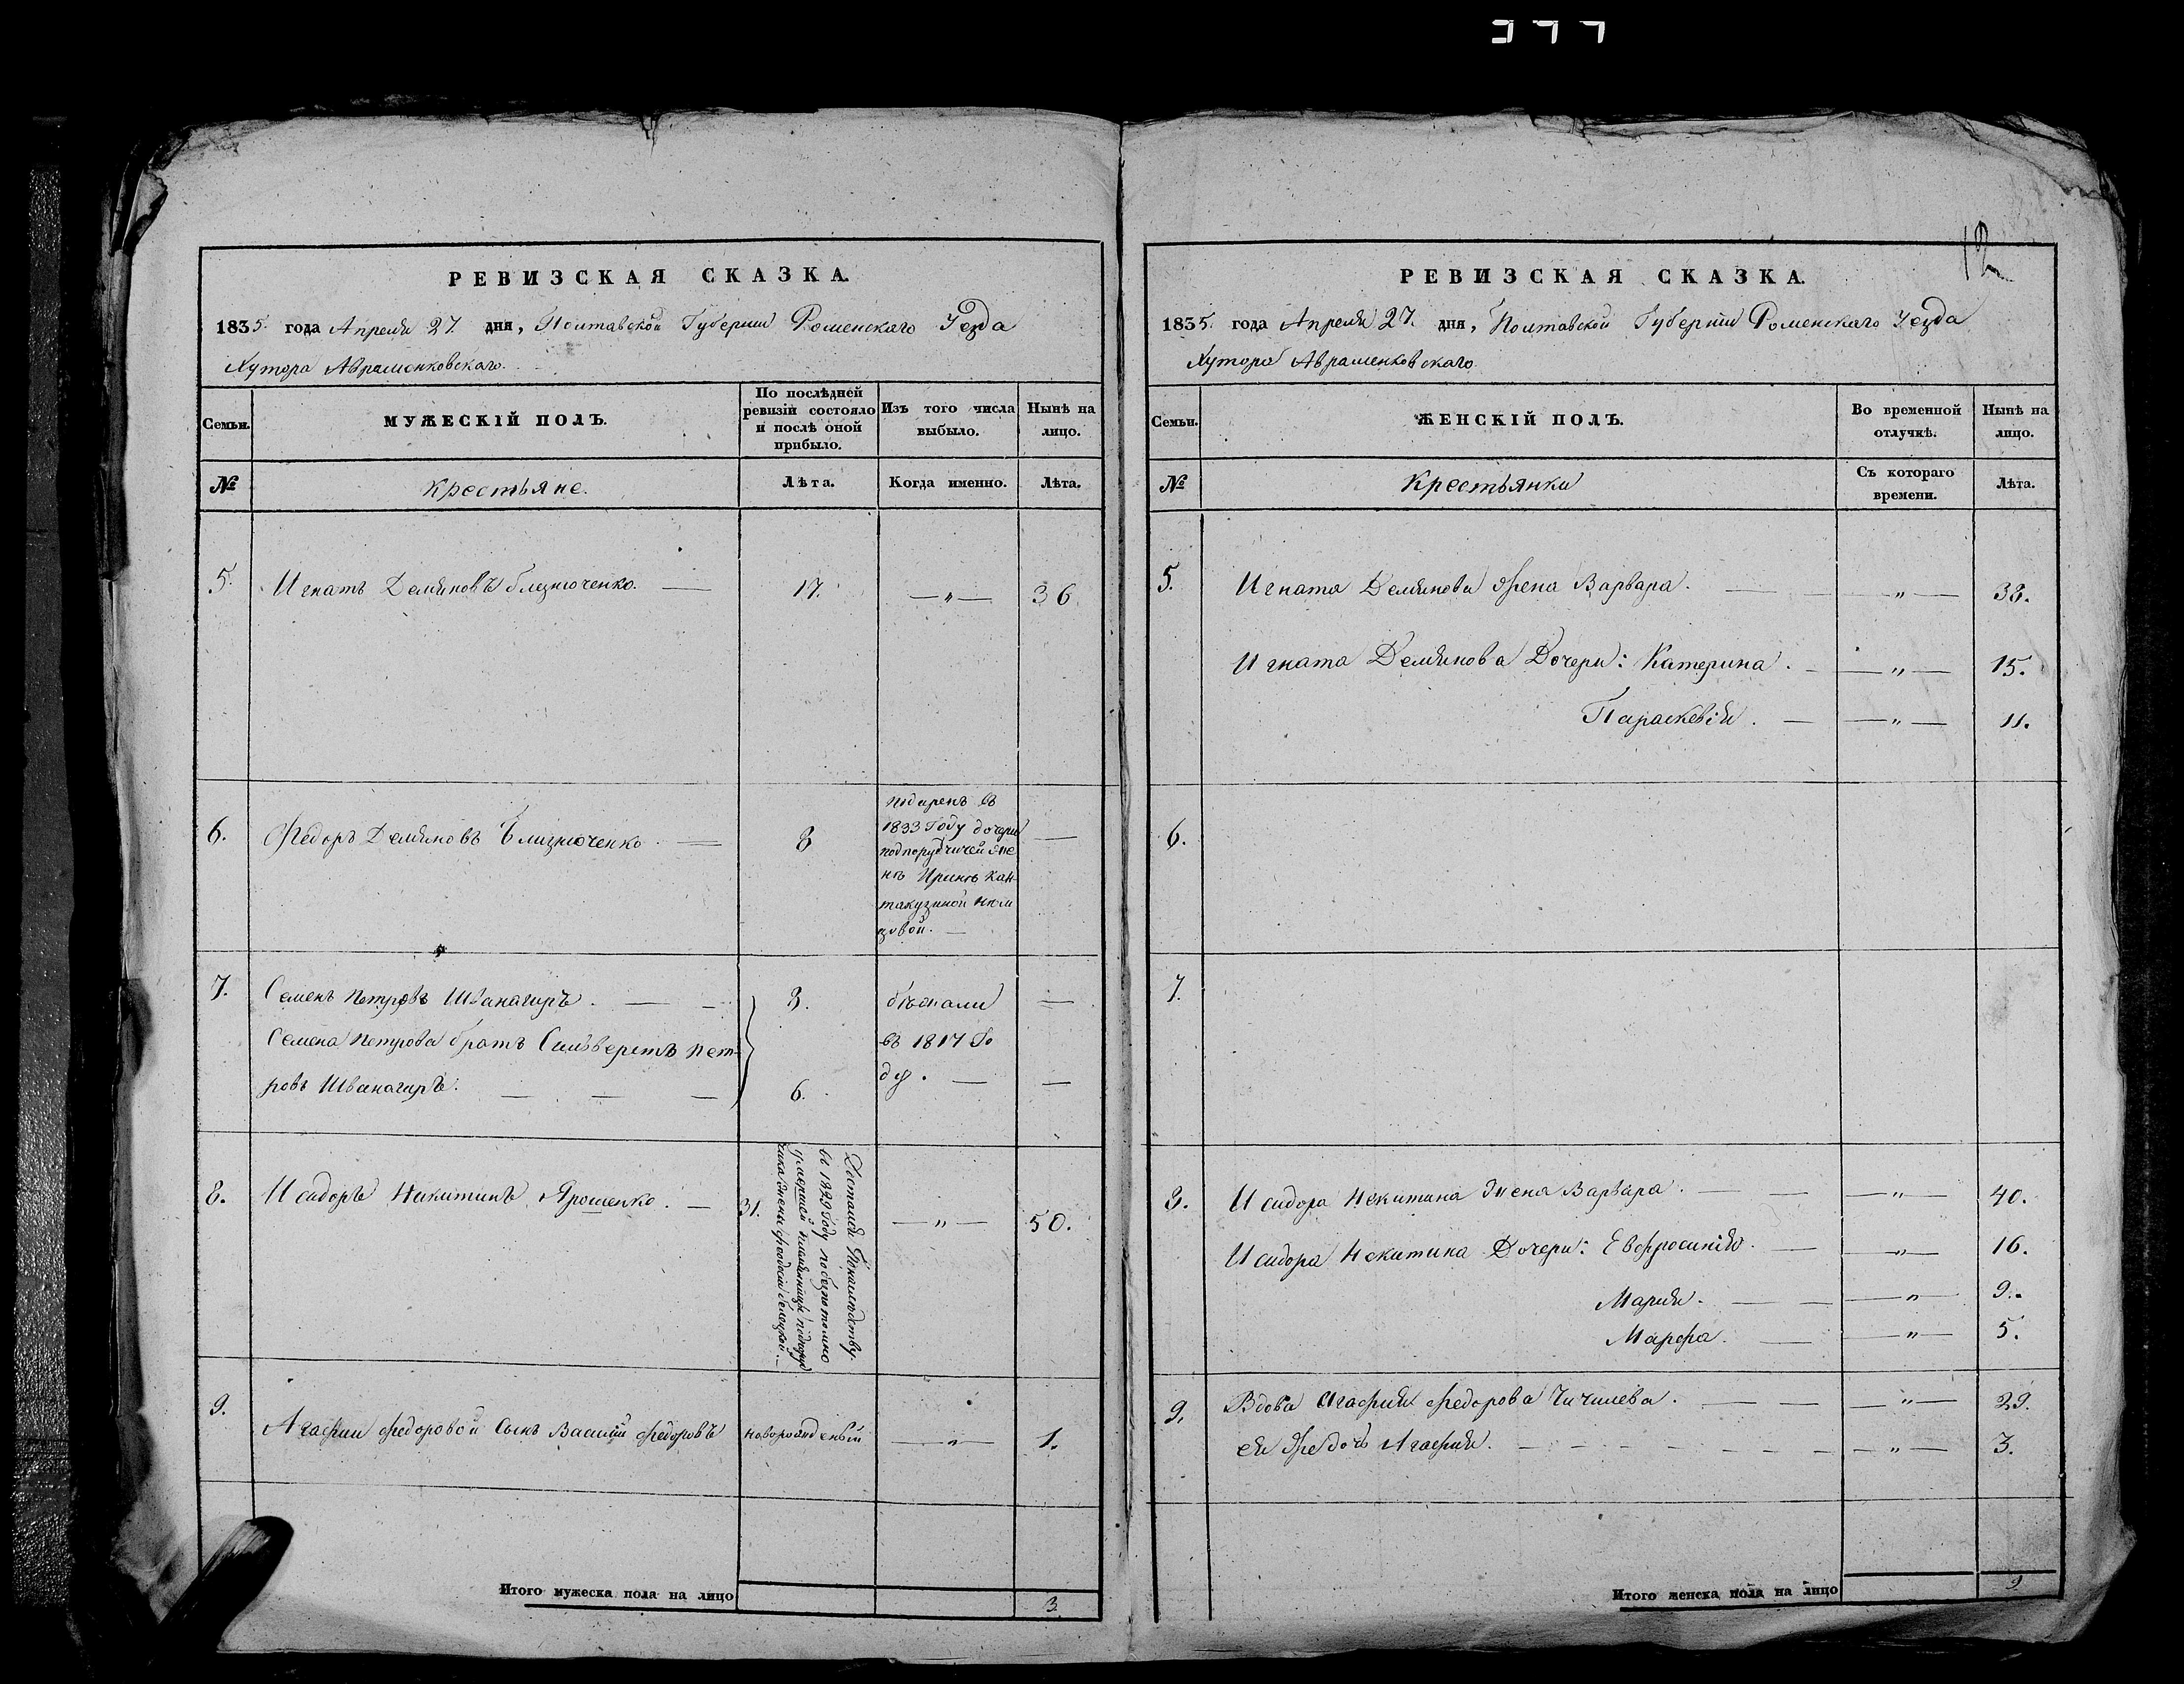 12
РЕВИЗСКАЯ СКАЗКА.
1835. года Апреля 27. дня, Полтавской Губернии Роменскаго Уезда
Хутора Авраменковскаго.
Семьи.
МУЖЕСКІЙ ПОЛЪ.
По послѣдней ревизіи состояло и послѣ оной прибыло.
Изъ того числа выбыло.
Нынѣ на лицо.
№
Крестьяне.
Лѣта.
Когда именно.
Лѣта.
5. Игнатъ Демяновъ близнюченко. — 17. — „ — 36
6. Федоръ Демяновъ Близнюченко. — 8 —
подаренъ въ
1833 Году дочери
подпорутчичей Яне
нѣ Иринѣ Кан-
такузиной
7. Семенъ Петровъ Шванагиръ. — 3. —
Семена Петрова братъ Силвестръ Пет-
ровъ Шванагиръ. — 6. —
бѣжали
въ 1817 Го
ду. —
8. Исидоръ Никитинъ Ярошенко. — 31. — „ — 50.
Достался По наслѣдству
въ 1829 Году по безпотомно
умершей племянницы подпорут
чика Жены Феодосіи белецкой. —
9. Агафии Федоровой Сынъ Василий Федоровъ новорожденый — „ — 1.
Итого мужеска пола на лицо 3
РЕВИЗСКАЯ СКАЗКА.
1835. года Апреля 27. дня, Полтавской Губерніи Роменскаго Уезда
Хутора Авраменковскаго.
Семьи.
ЖЕНСКІЙ ПОЛЪ.
Во временной отлучкѣ.
Нынѣ на лицо.
№
Крестьянки
Съ котораго времени.
Лѣта.
5. Игната Демянова Жена Варвара. — „ — 38.
Игната Демянова Дочери: Катерина. — „ — 15.
Параскевія. — „ — 11.
6.
7.
8. Исидора Никитина Жена Варвара. — „ — 40.
Исидора Никитина Дочери: Евфросинія. — „ — 16.
Мария. — „ — 9.
Марфа. — „ — 5.
9. Вдова Агафия Федорова Чичилева. — „ — 29.
ея же дочь Агафия. — „ — 3.
Итого женска пола на лицо 9